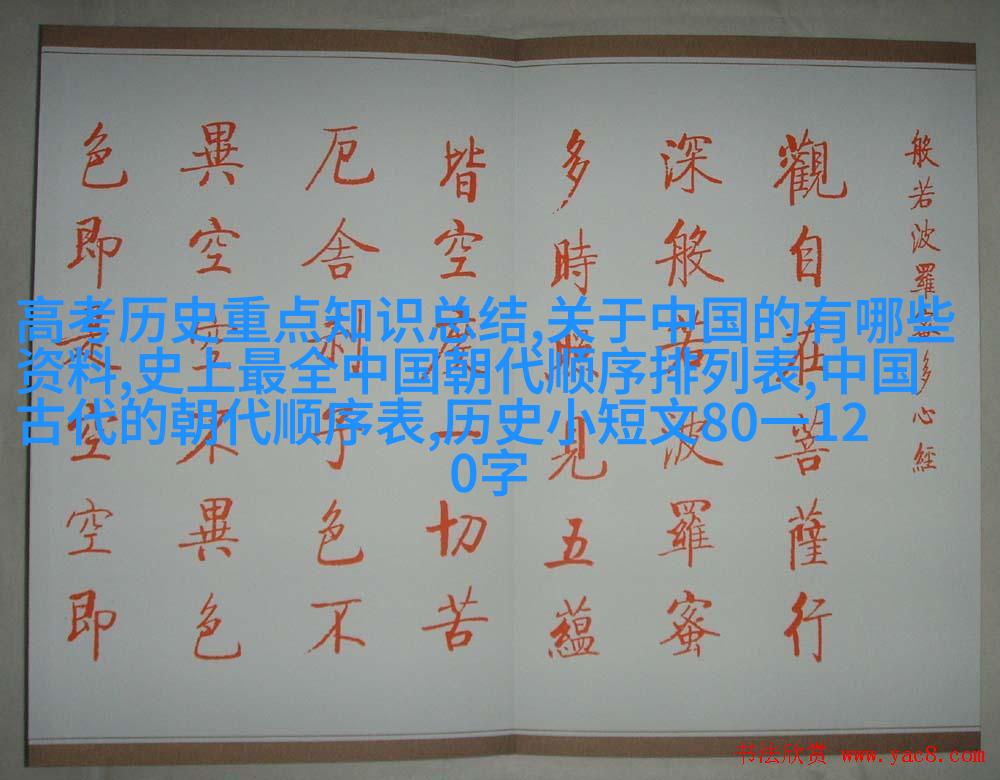 般若波羅蜜多心經
觀自在菩薩行
深般若波羅蜜
多時照見五蘊
皆空度一切苦
厄舍利子色不
異空空不異色
色即是空空即
高考历史重点知识总结,关于中国的有哪些
资料,史上最全中国朝代顺序排列表,中国
古代的朝代顺序表,历史小短文80一12
0字
书法欣赏 www.yac8.com